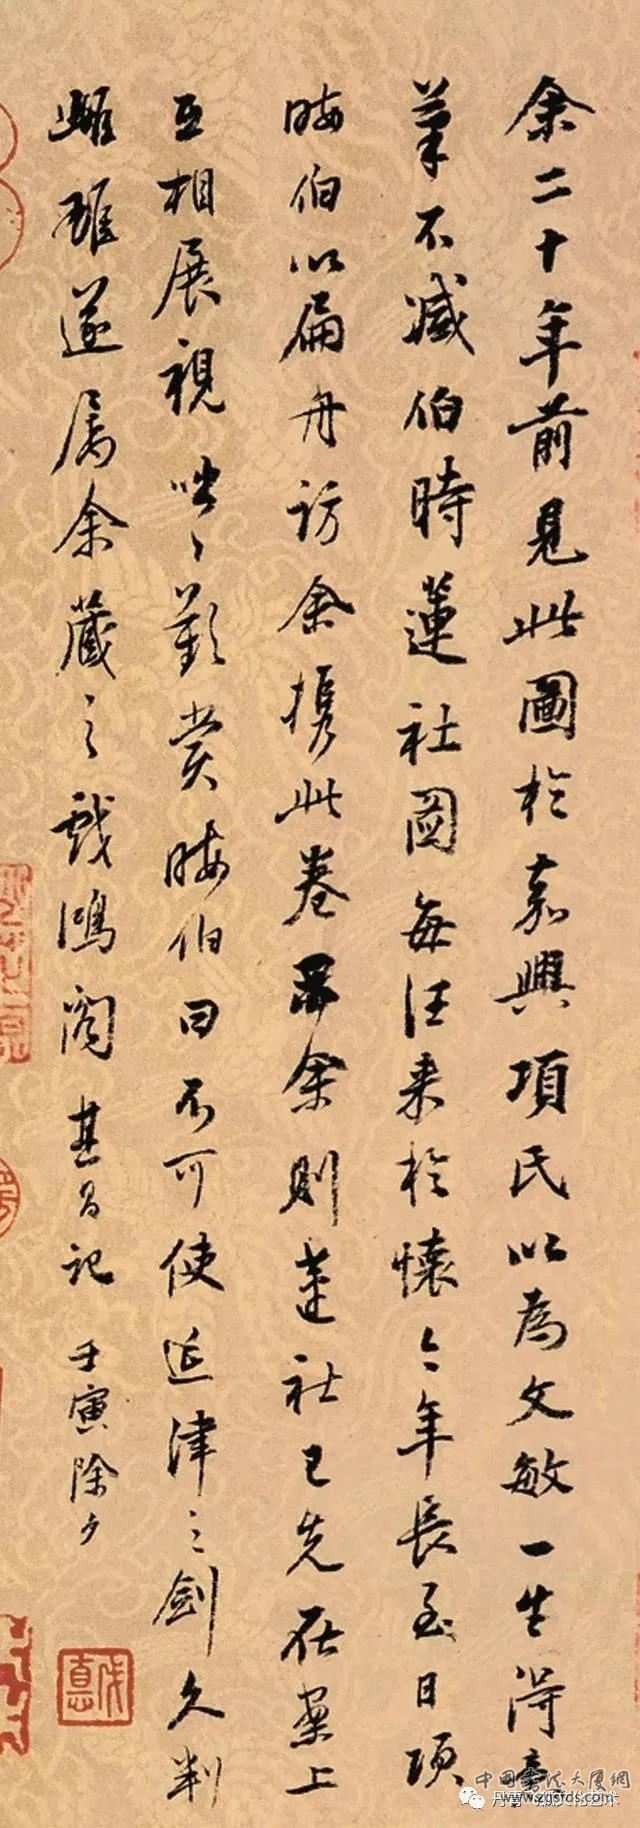 余二十年前見此圖於嘉興項氏以為文敏一生得意
筆不減伯時蓮社圖每往来於懷今年長至日項
晦伯以扁舟訪余攜此卷示余則蓮社已先在案上
互相展視咄咄歎賞晦伯曰不可使延津之劍久判
雌雄遂屬余藏之戲鴻閣其昌記 壬寅除夕
中國書法大廈網
www.zgsfds.com
文化艺术